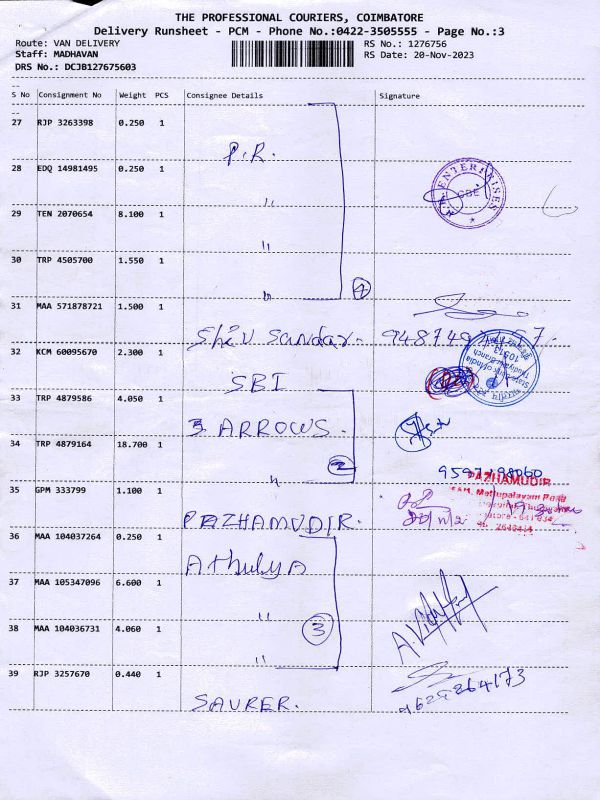 THE PROFESSIONAL COURIERS, COIMBATORE
Delivery Runsheet - PCM - Phone No.:0422-3505555 - Page No.:3
Route: VAN DELIVERY RS No.: 1276756
Staff: MADHAVAN RS Date: 20-Nov-2023
DRS No.: DCJB127675603
--
S No Consignment No Weight PCS Consignee Details Signature
--
27 RJP 3263398 0.250 1
P.R.
28 EDQ 14981495 0.250 1
ENTERPRISES
CBE
"
29 TEN 2070654 8.100 1
"
30 TRP 4505700 1.550 1
" 4
31 MAA 571878721 1.500 1
Shiv Sundar.
32 KCM 60095670 2.300 1
State Bank of India
SBI
33 TRP 4879586 4.050 1
3 ARROWS.
34 TRP 4879164 18.700 1
" 2
PAZHAMUDIR
35 GPM 333799 1.100 1
Mettupalayam Road
PAZHAMUDIR.
36 MAA 104037264 0.250 1
Athulya
37 MAA 105347096 6.600 1
"
38 MAA 104036731 4.060 1 3
"
39 RJP 3257670 0.440 1
9629264173
SAURER.